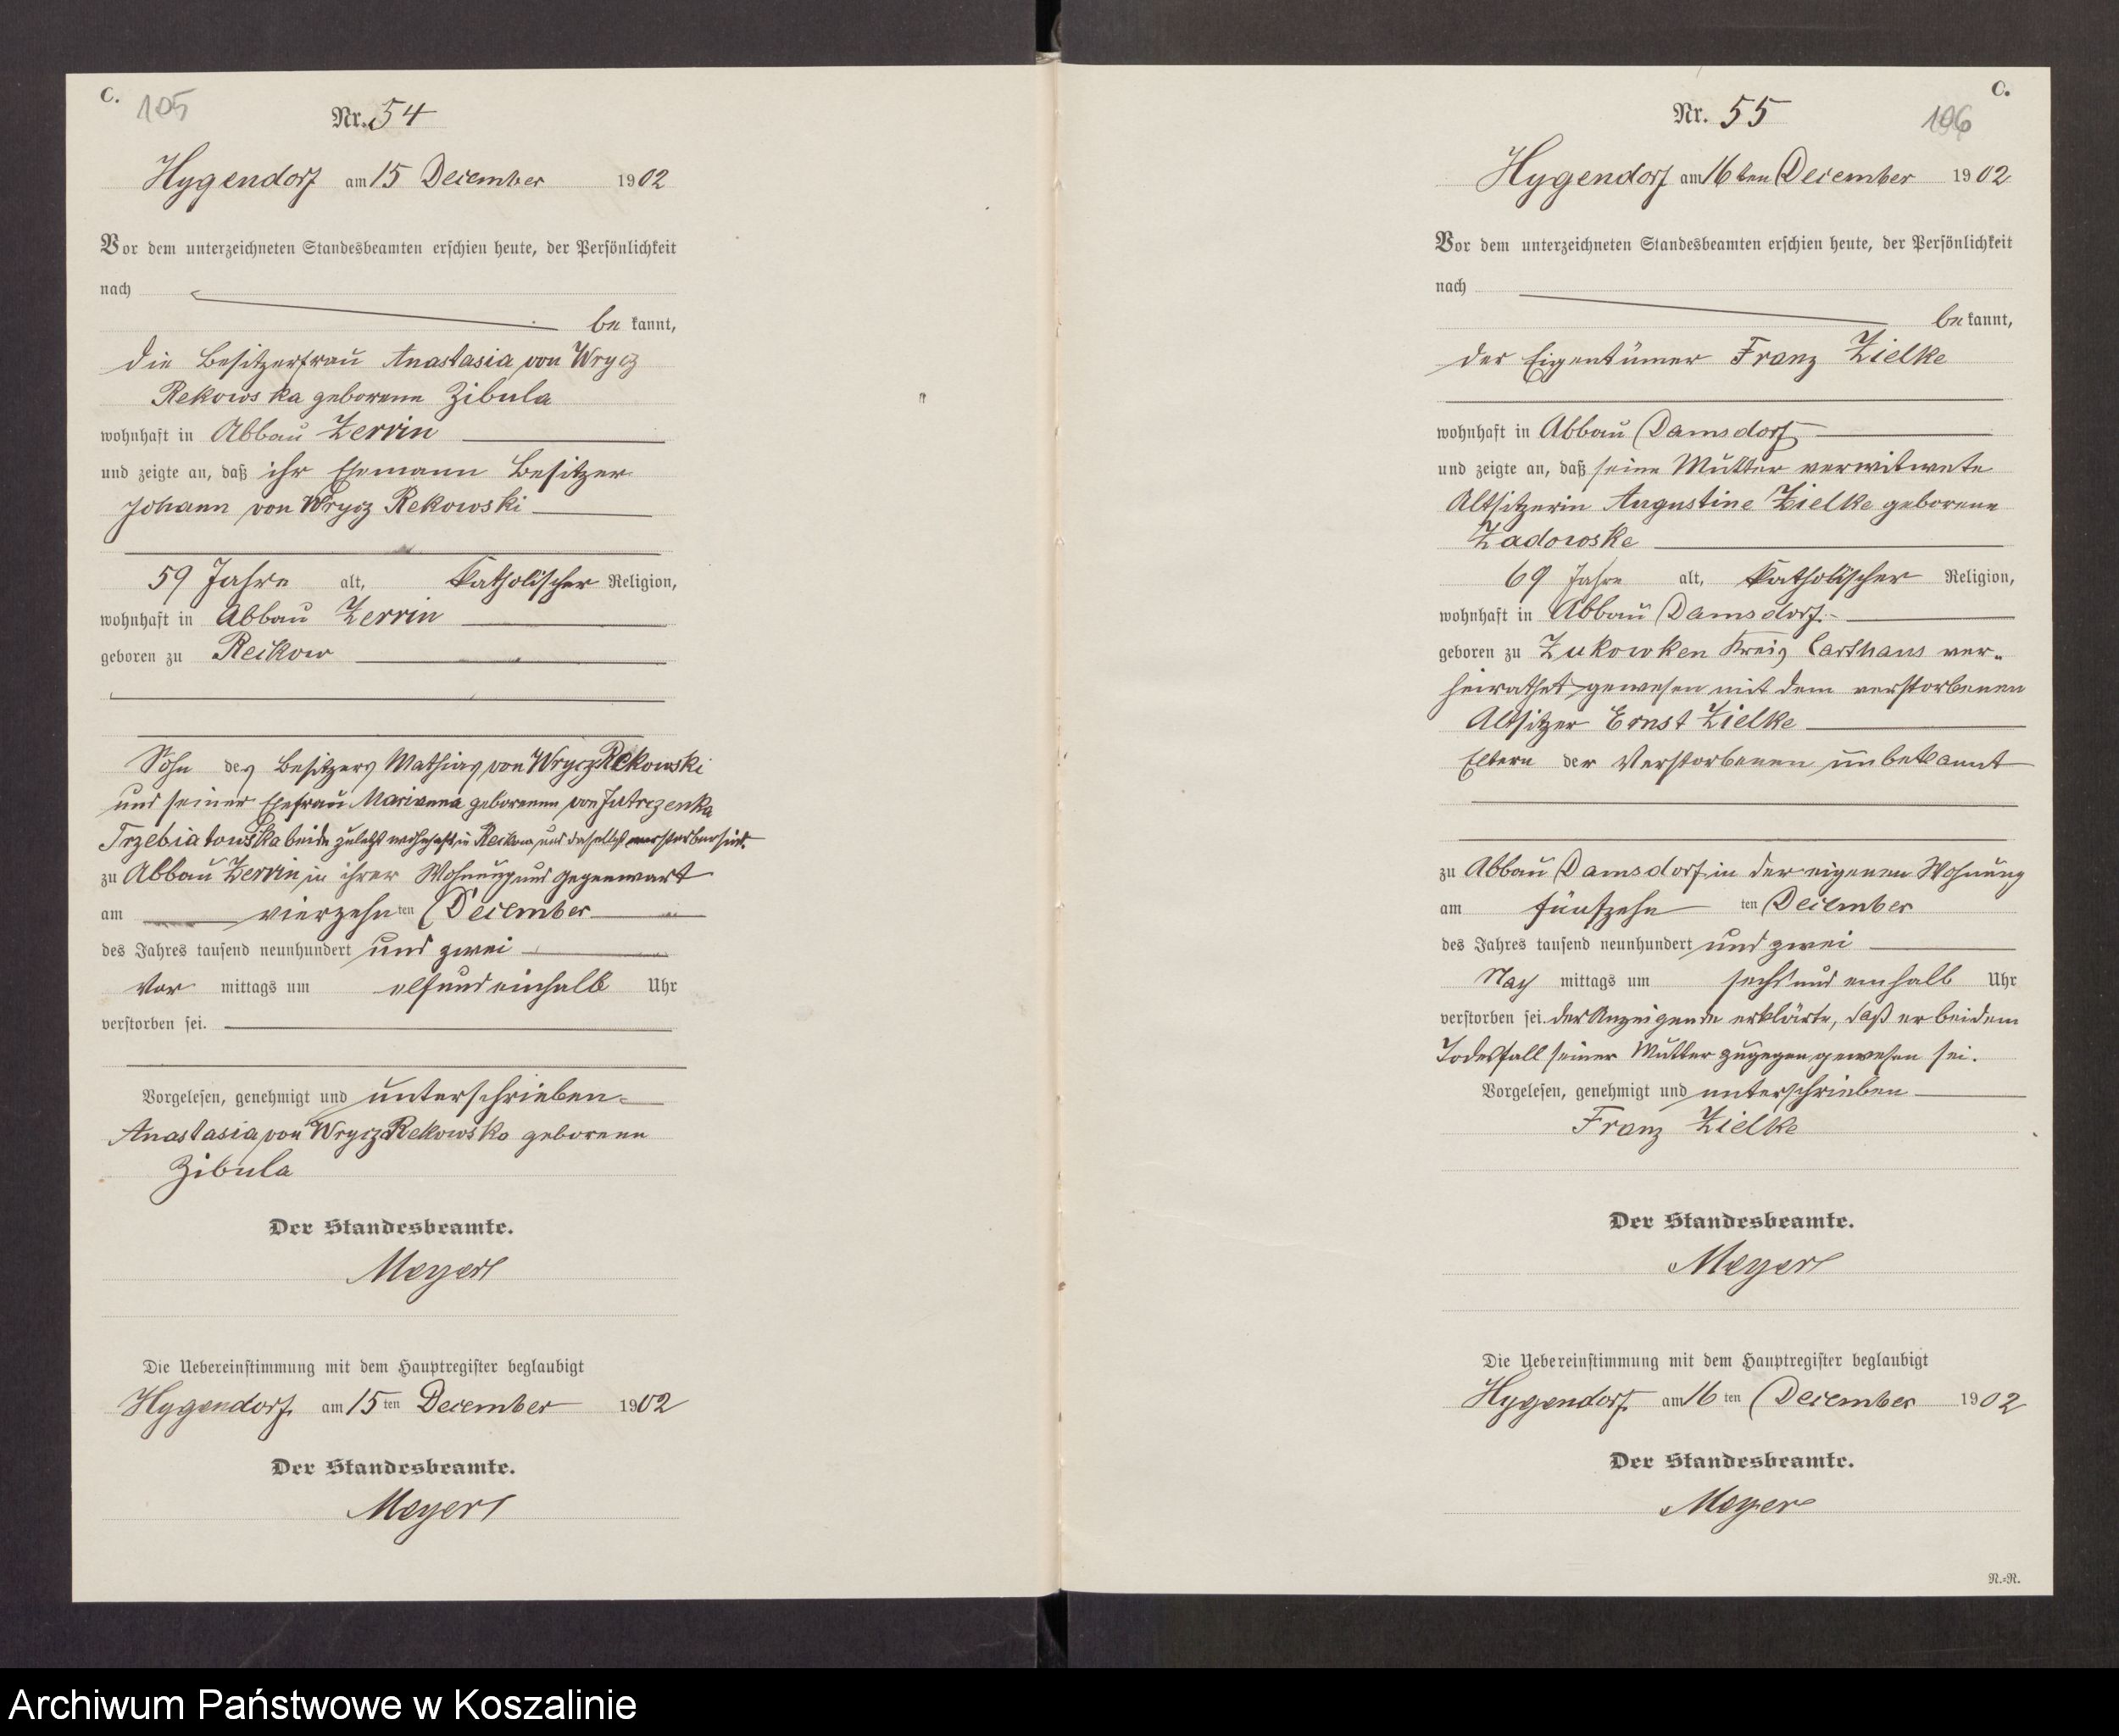 C.
105
Nr. 54
Hygendorf am 15 December 1902
Vor dem unterzeichneten Standesbeamten erschien heute, der Persönlichkeit
nach
be kannt,
die Besitzerfrau Anastasia von Wrycz
Rekowska geborene Zibula
wohnhaft in Abbau Zerrin
und zeigte an, daß ihr Ehemann Besitzer
Johann von Wrycz Rekowski
59 Jahre alt, katholischer Religion,
wohnhaft in Abbau Zerrin
geboren zu Reckow
Sohn des Besitzers Mathias von Wrycz Rekowski
und seiner Ehefrau Marianna geborenen von Jutrzenka
Trzebiatowska beide zuletzt wohnhaft in Reckow und daselbst verstorben sind.
zu Abbau Zerrin in ihrer Wohnung und Gegenwart
am vierzehn ten December
des Jahres tausend neunhundert und zwei
Vor mittags um elf und einhalb Uhr
verstorben sei.
Vorgelesen, genehmigt und unterschrieben
Anastasia von Wrycz Rekowska geborene
Zibula
Der Standesbeamte.
Meyer
Die Uebereinstimmung mit dem Hauptregister beglaubigt
Hygendorf am 15 ten December 1902
Der Standesbeamte.
Meyer
C.
106
Nr. 55
Hygendorf am 16 ten December 1902
Vor dem unterzeichneten Standesbeamten erschien heute, der Persönlichkeit
nach
be kannt,
der Eigentümer Franz Zielke
wohnhaft in Abbau Damsdorf
und zeigte an, daß seine Mutter verwitwete
Altsitzerin Augustine Zielke geborene
Zadowske
69 Jahre alt, katholischer Religion,
wohnhaft in Abbau Damsdorf.
geboren zu Zukowken Kreis Carthaus ver-
heirathet gewesen mit dem verstorbenen
Altsitzer Ernst Zielke
Eltern der Verstorbenen unbekannt
zu Abbau Damsdorf in der eigenen Wohnung
am fünfzehn ten December
des Jahres tausend neunhundert und zwei
Nach mittags um sechs und einhalb Uhr
verstorben sei. der Anzeigende erklärte, daß er bei dem
Todesfall seiner Mutter zugegen gewesen sei.
Vorgelesen, genehmigt und unterschrieben
Franz Zielke
Der Standesbeamte.
Meyer
Die Uebereinstimmung mit dem Hauptregister beglaubigt
Hygendorf am 16 ten December 1902
Der Standesbeamte.
Meyer
N.-N.
Archiwum Państwowe w Koszalinie